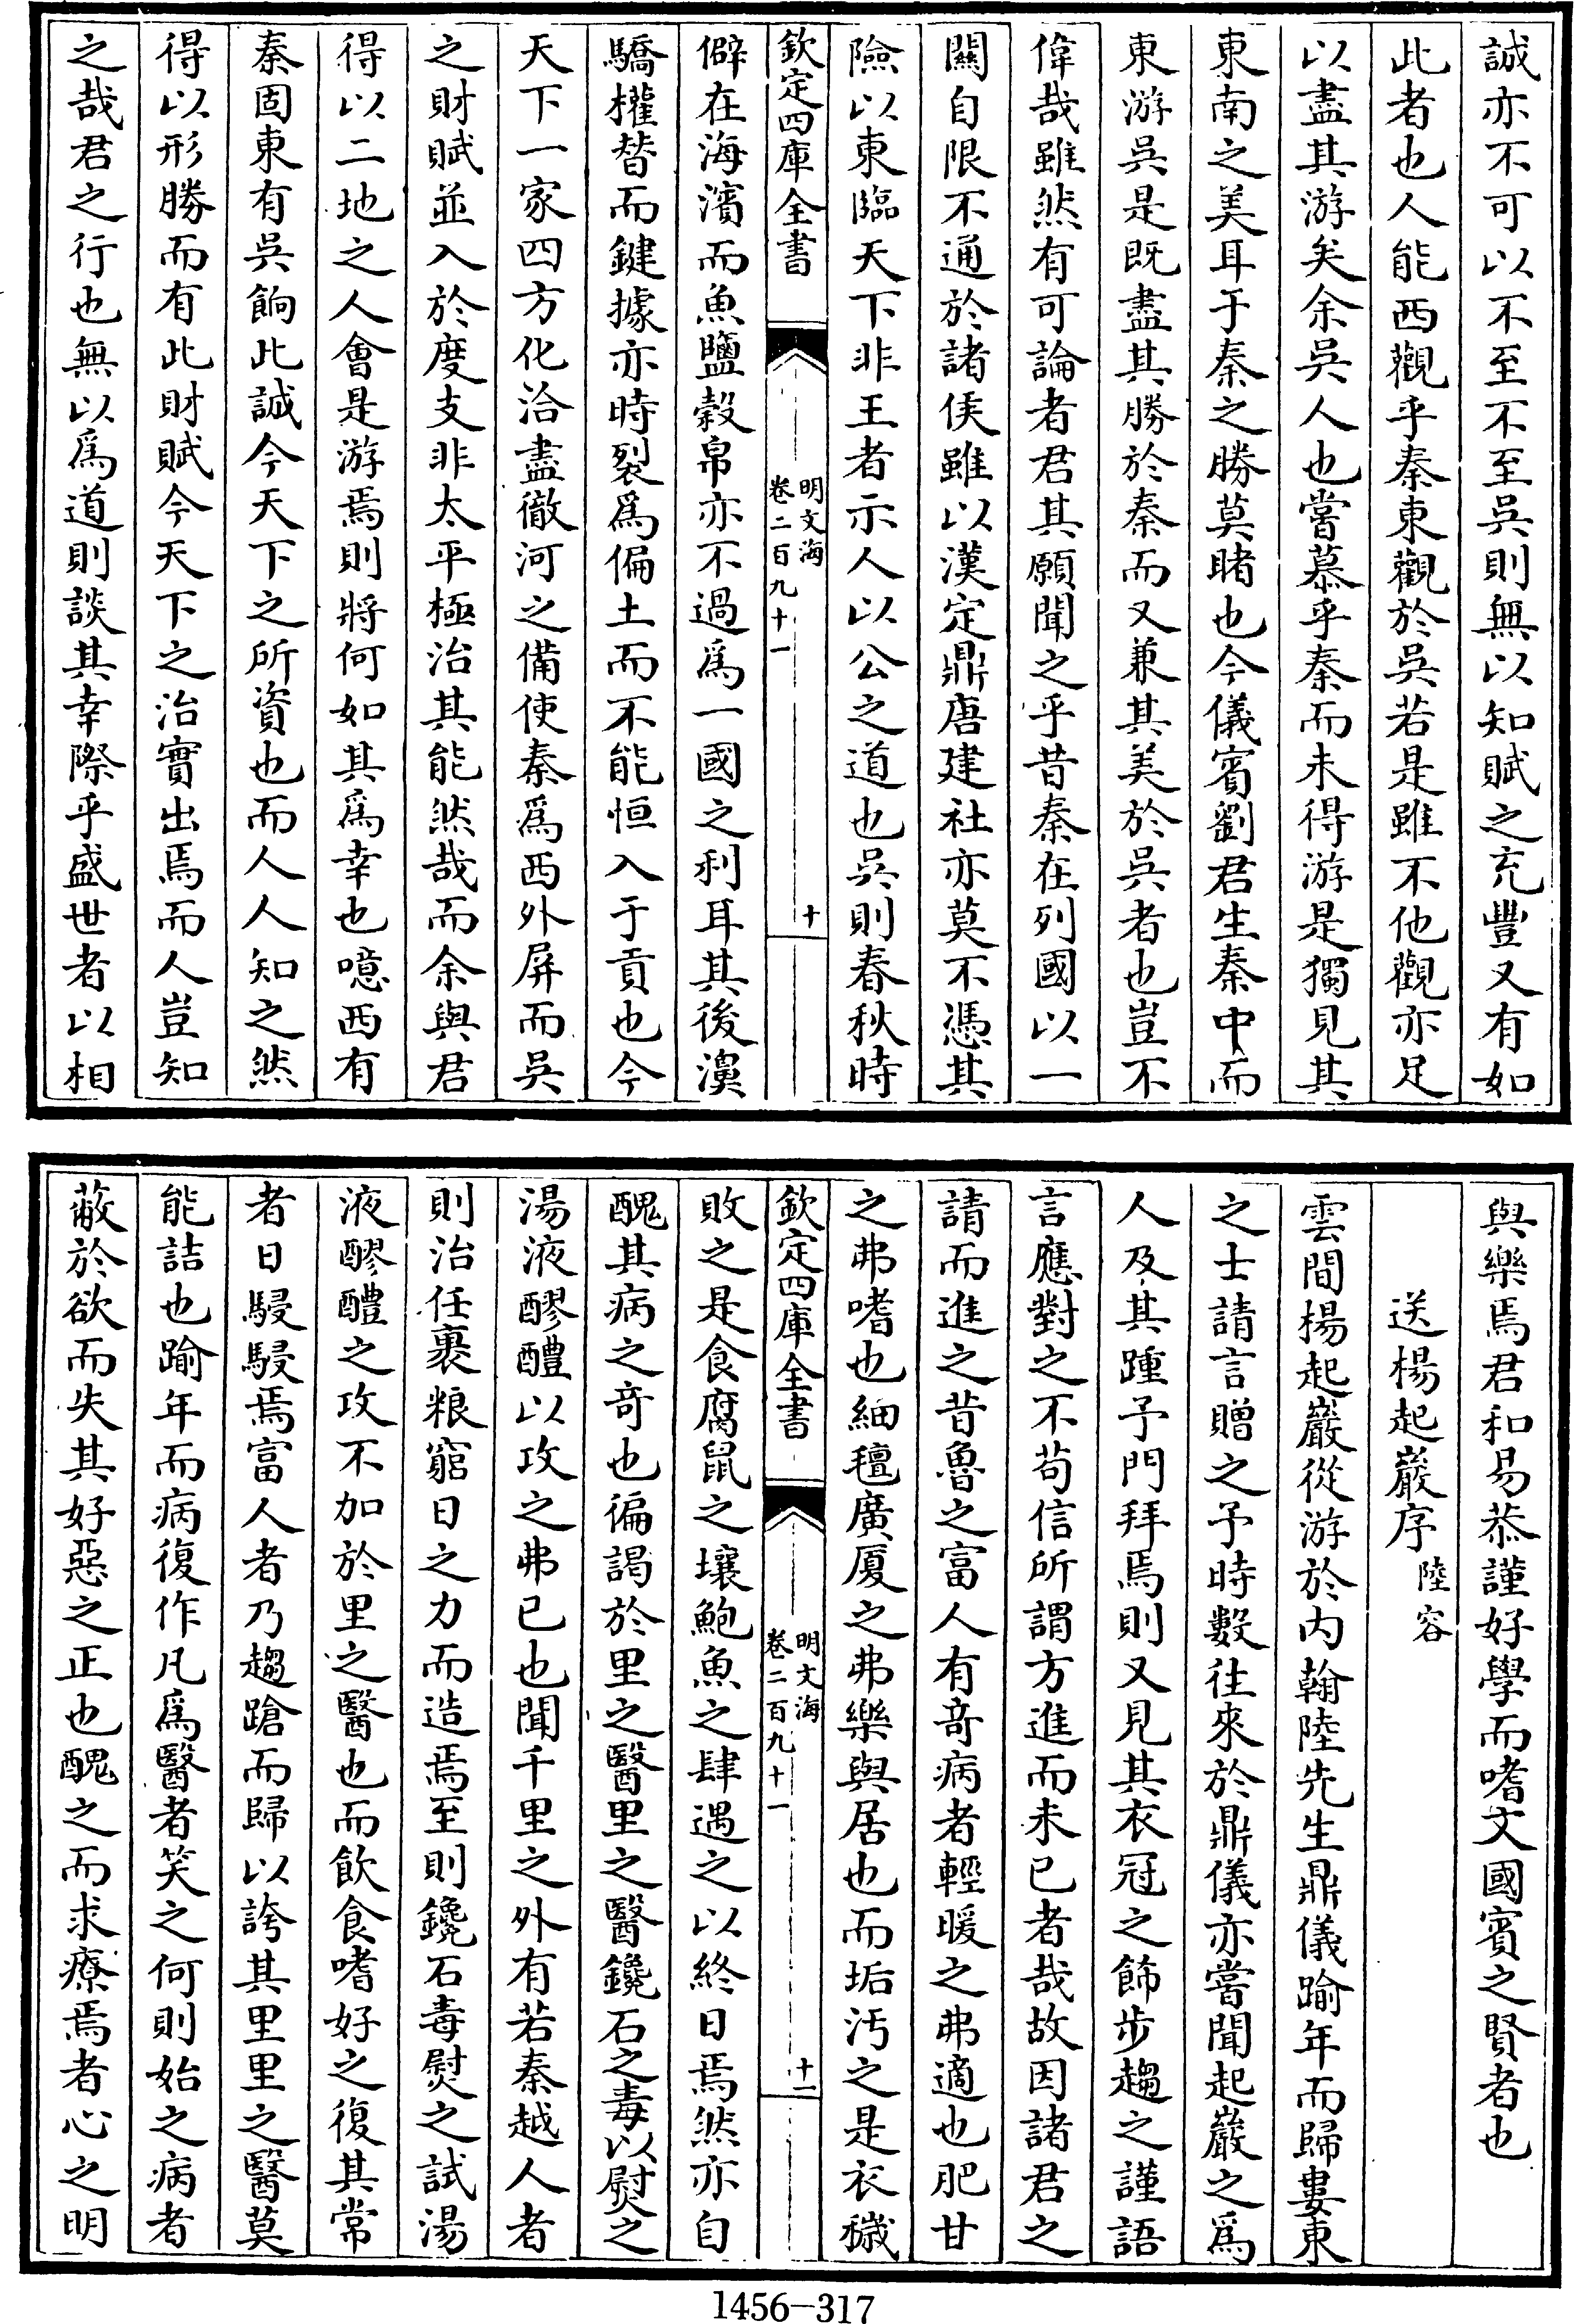 誠亦不可以不至不至吳則無以知賦之充豐又有如
此者也人能西觀乎秦東觀於吳若是雖不他觀亦足
以盡其游矣余吳人也嘗慕乎秦而未得游是獨見其
東南之美耳于秦之勝莫睹也今儀賓劉君生秦中而
東游吳是既盡其勝於秦而又兼其美於吳者也豈不
偉哉雖然有可論者君其願聞之乎昔秦在列國以一
關自限不通於諸侯雖以漢定鼎唐建社亦莫不憑其
險以東臨天下非王者示人以公之道也吳則春秋時
欽定四庫全書
明文海
卷二百九十一
十
僻在海濱而魚鹽穀帛亦不過爲一國之利耳其後濞
驕權替而鍵據亦時裂爲偏土而不能恒入于貢也今
天下一家四方化洽盡徹河之備使秦爲西外屏而吳
之財賦並入於度支非太平極治其能然哉而余與君
得以二地之人會是游焉則將何如其爲幸也噫西有
秦固東有吳餉此誠今天下之所資也而人人知之然
得以形勝而有此財賦今天下之治實出焉而人豈知
之哉君之行也無以爲道則談其幸際乎盛世者以相
與樂焉君和易恭謹好學而嗜文國賓之賢者也
送楊起巖序 陸容
雲間楊起巖從游於内翰陸先生鼎儀踰年而歸婁東
之士請言贈之予時數往來於鼎儀亦嘗聞起巖之爲
人及其踵予門拜焉則又見其衣冠之飾步趨之謹語
言應對之不苟信所謂方進而未已者哉故因諸君之
請而進之昔魯之富人有奇病者輕暖之弗適也肥甘
之弗嗜也細氊廣厦之弗樂與居也而垢汚之是衣穢
欽定四庫全書
明文海
卷二百九十一
十一
敗之是食腐鼠之壤鮑魚之肆遇之以終日焉然亦自
醜其病之奇也徧謁於里之醫里之醫鑱石之毒以熨之
湯液醪醴以攻之弗已也聞千里之外有若秦越人者
則治任裹粮窮日之力而造焉至則鑱石毒熨之試湯
液醪醴之攻不加於里之醫也而飲食嗜好之復其常
者日駸駸焉富人者乃趨蹌而歸以誇其里里之醫莫
能詰也踰年而病復作凡爲醫者笑之何則始之病者
蔽於欲而失其好惡之正也醜之而求療焉者心之明
1456-317